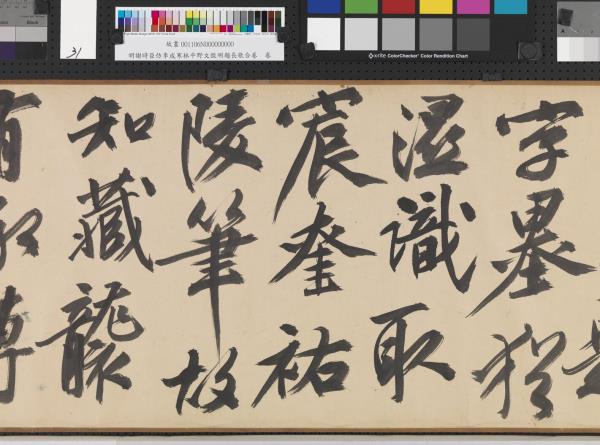 31
Black
故畫 001106N000000000
明謝時臣仿李成寒林平野文徵明題長歌合卷 卷
x-rite ColorChecker Color Rendition Chart
字墨猶
濕識取
宸奎祐
陵筆故
知藏龍
有